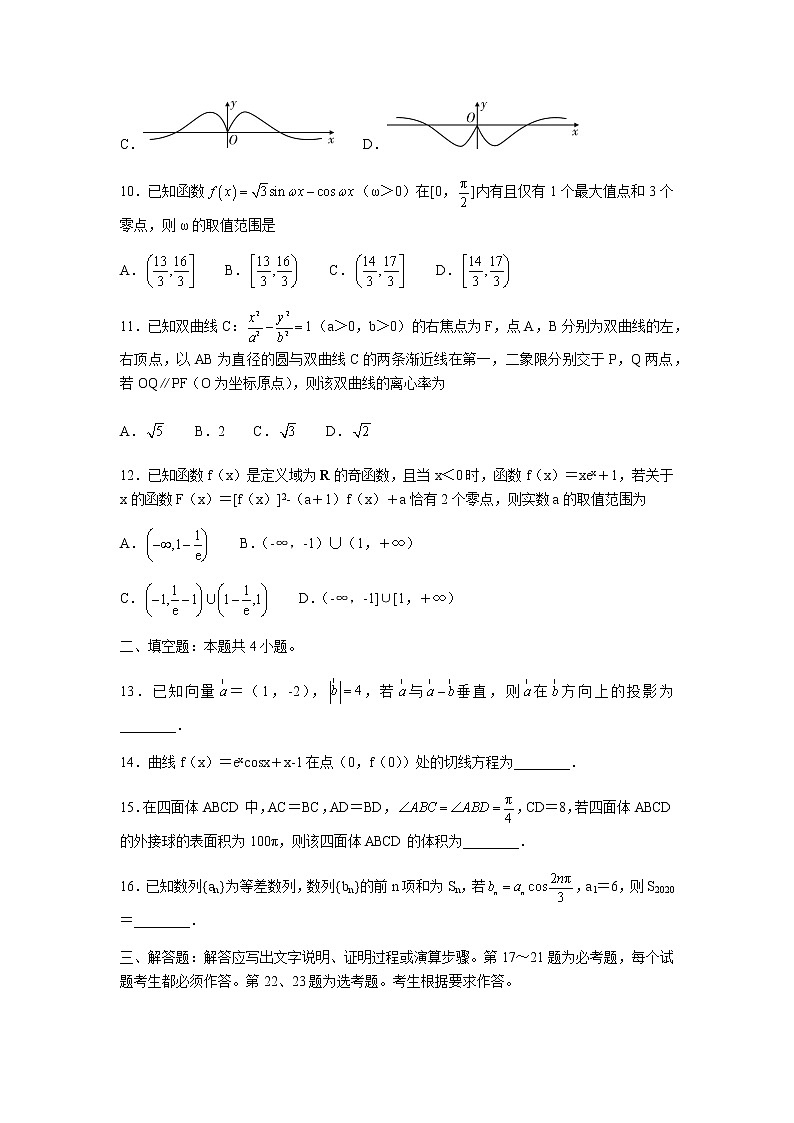 C. y O x D. y O x
10.已知函数 f(x)=√3sin ωx−cos ωx(ω>0)在[0, π/2]内有且仅有 1 个最大值点和 3 个
零点,则 ω 的取值范围是
A. (13/3, 16/3] B. [13/3, 16/3) C. (14/3, 17/3] D. [14/3, 17/3)
11.已知双曲线 C: x²/a² − y²/b² = 1(a>0,b>0)的右焦点为 F,点 A,B 分别为双曲线的左,
右顶点,以 AB 为直径的圆与双曲线 C 的两条渐近线在第一,二象限分别交于 P,Q 两点,
若 OQ∥PF(O 为坐标原点),则该双曲线的离心率为
A. √5 B.2 C. √3 D. √2
12.已知函数 f(x)是定义域为 R 的奇函数,且当 x<0 时,函数 f(x)=xeˣ+1,若关于
x 的函数 F(x)=[f(x)]²-(a+1)f(x)+a 恰有 2 个零点,则实数 a 的取值范围为
A. (−∞,1−1/e) B.(-∞,-1)∪(1,+∞)
C. (−1,1/e−1)∪(1−1/e,1) D.(-∞,-1]∪[1,+∞)
二、填空题:本题共 4 小题。
13.已知向量a=(1,-2),|b|=4,若a与a−b垂直,则a在b方向上的投影为
________.
14.曲线 f(x)=eˣcosx+x-1 在点(0,f(0))处的切线方程为________.
15.在四面体 ABCD 中,AC=BC,AD=BD,∠ABC=∠ABD=π/4,CD=8,若四面体 ABCD
的外接球的表面积为 100π,则该四面体 ABCD 的体积为________.
16.已知数列{aₙ}为等差数列,数列{bₙ}的前 n 项和为 Sₙ,若 bₙ=aₙcos 2nπ/3,a₁=6,则 S₂₀₂₀
=________.
三、解答题:解答应写出文字说明、证明过程或演算步骤。第 17~21 题为必考题,每个试
题考生都必须作答。第 22、23题为选考题。考生根据要求作答。